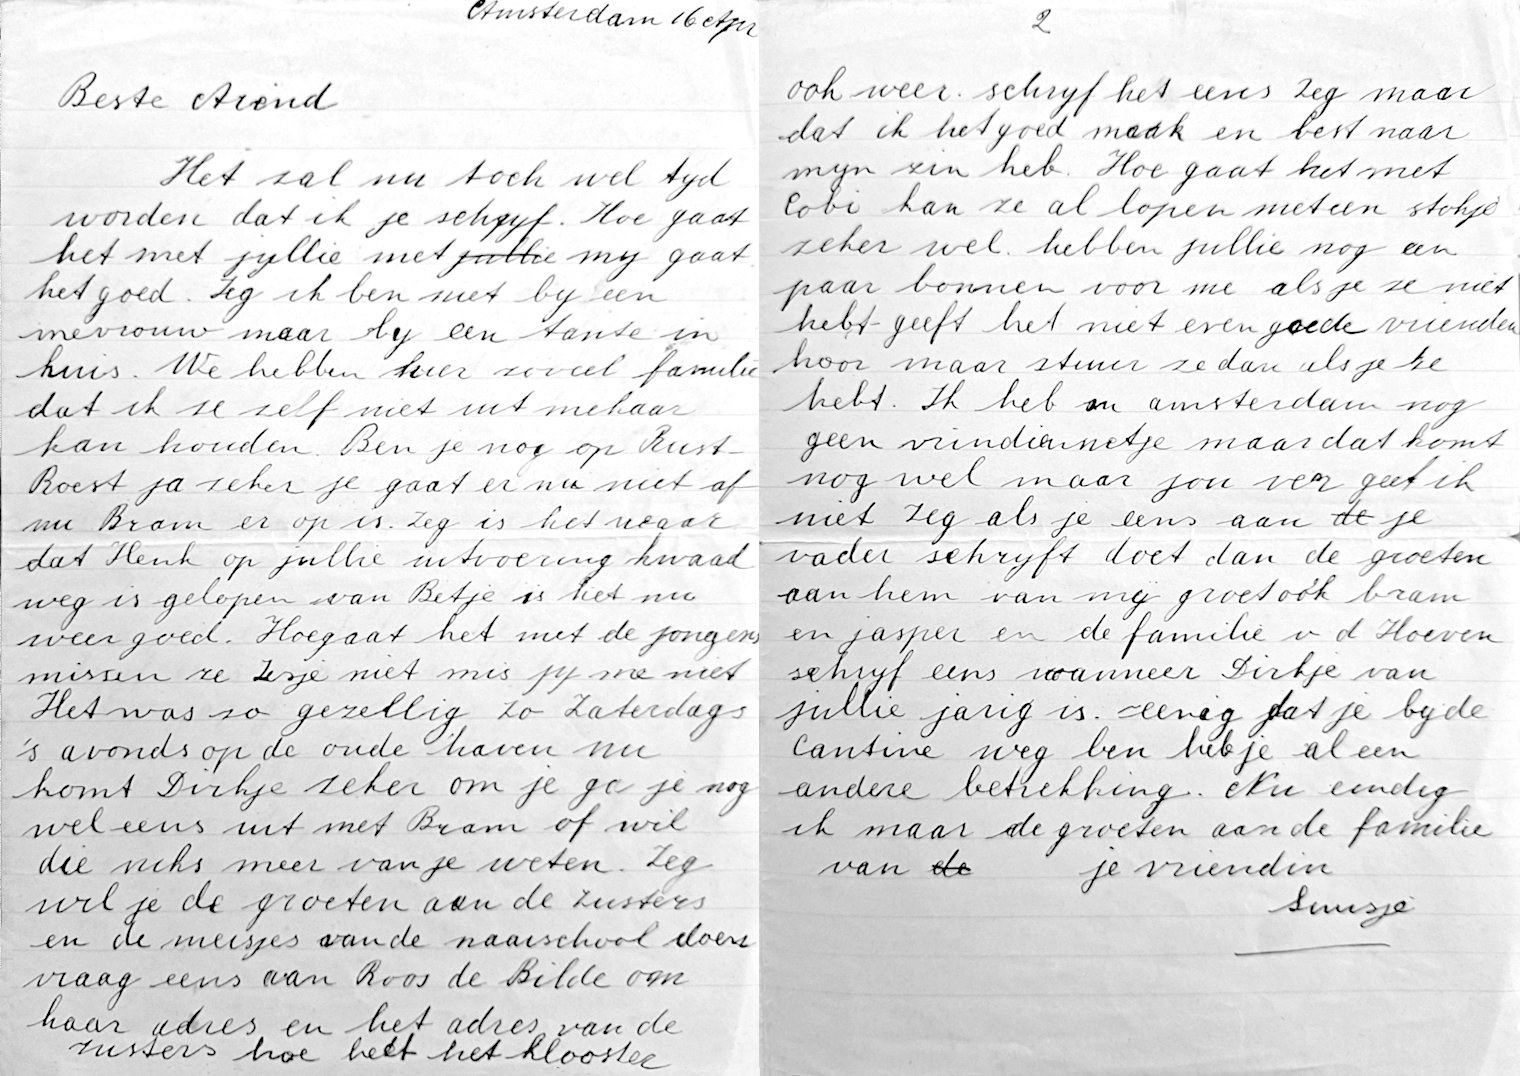 Amsterdam 16 Apr
Beste Arend
Het zal nu toch wel tyd
worden dat ik je schryf. Hoe gaat
het met jullie met jullie my gaat
het goed. Zeg ik ben niet by een
mevrouw maar by een tante in
huis. We hebben hier zoveel familie
dat ik ze zelf niet uit mekaar
kan houden. Ben je nog op Rust-
Roest ja zeker je gaat er nu niet af
nu Bram er op is. Zeg is het waar
dat Henk op jullie uitvoering kwaad
weg is gelopen van Betje is het nu
weer goed. Hoegaat het met de jongens
missen ze Zusje niet mis jy me niet
Het was zo gezellig zo Zaterdags
's avonds op de oude haven nu
komt Dirkje zeker om je ga je nog
wel eens uit met Bram of wil
die niks meer van je weten. Zeg
wil je de groeten aan de zusters
en de meisjes van de naaischool doen
vraag eens aan Roos de Bilde om
haar adres en het adres van de
zusters hoe heet het klooster
2
ook weer. schryf het eens Zeg maar
dat ik het goed maak en best naar
myn zin heb. Hoe gaat het met
Cobi kan ze al lopen met een stokje
zeker wel. hebben jullie nog een
paar bonnen voor me als je ze niet
hebt geeft het niet even goede vrienden
hoor maar stuur ze dan als je ze
hebt. Ik heb in amsterdam nog
geen vrindinnetje maar dat komt
nog wel maar jou ver geet ik
niet Zeg als je eens aan de je
vader schryft doet dan de groeten
aan hem van mij groet ook bram
en jasper en de familie v d Hoeven
schryf eens wanneer Dirkje van
jullie jarig is. zeenig dat je by de
Cantine weg ben heb je al een
andere betrekking. Nu eindig
ik maar de groeten aan de familie
van de je vriendin
Suusje